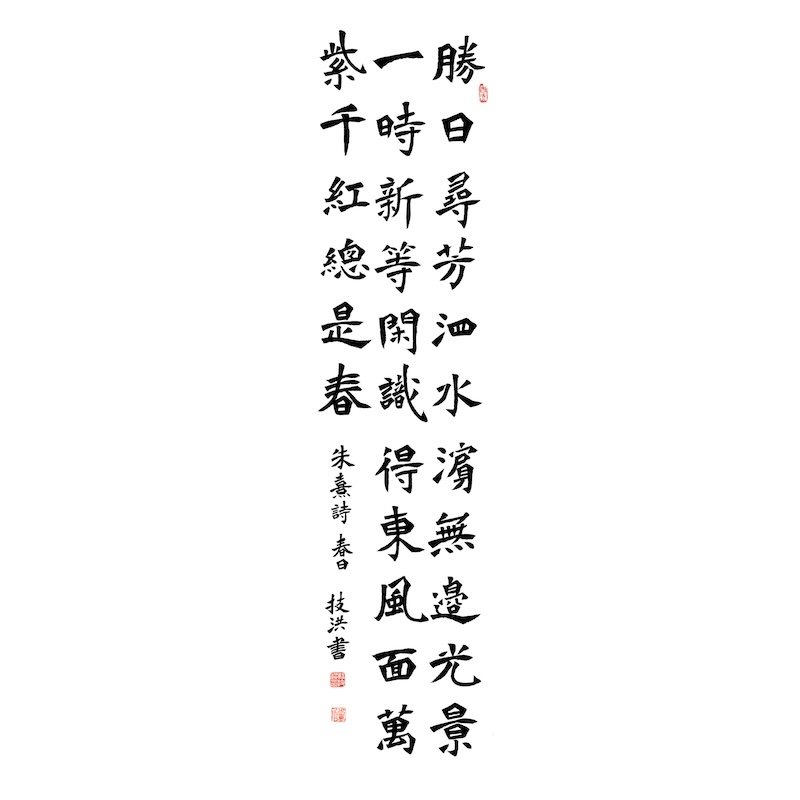 勝日尋芳泗水濱無邊光景
一時新等閑識得東風面萬
紫千紅總是春
朱熹詩 春日 技洪書